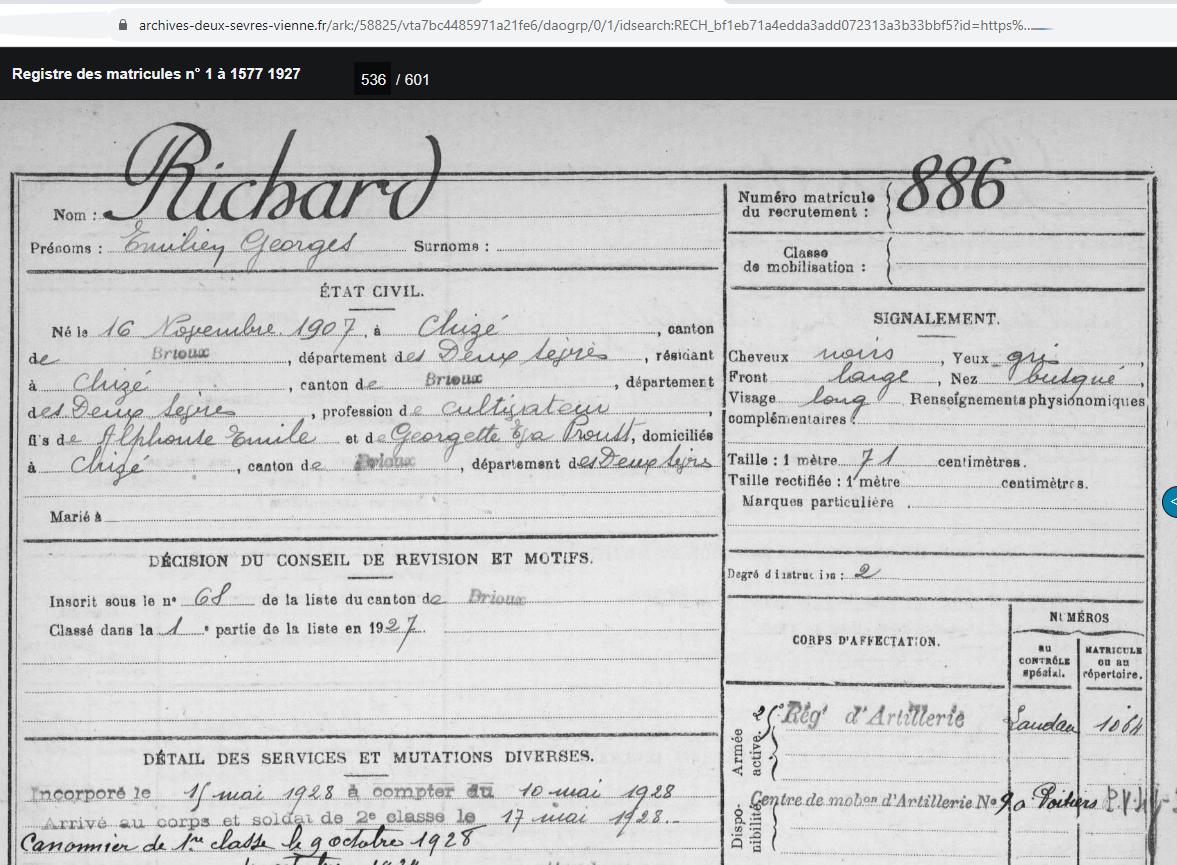 archives-deux-sevres-vienne.fr/ark:/58825/vta7bc4485971a21fe6/daogrp/0/1/idsearch:RECH_bf1eb71a4edda3add072313a3b33bbf5?id=https%...
Registre des matricules n° 1 à 1577 1927 536 / 601
Nom : Richard
Prénoms : Emilien Georges Surnoms :
ÉTAT CIVIL.
Né le 16 Novembre 1907 à Chizé, canton
de Brioux, département des Deux Sèvres, résidant
à Chizé, canton de Brioux, département
des Deux Sèvres, profession de cultivateur,
fils de Alphonse Emile et de Georgette Proust, domiciliés
à Chizé, canton de Brioux, département des Deux Sèvres
Marié à
DÉCISION DU CONSEIL DE REVISION ET MOTIFS.
Inscrit sous le n° 68 de la liste du canton de Brioux
Classé dans la 1 e partie de la liste en 1927.
DÉTAIL DES SERVICES ET MUTATIONS DIVERSES.
Incorporé le 15 mai 1928 à compter du 10 mai 1928
Arrivé au corps et soldat de 2e classe le 17 mai 1928.-
Canonnier de 1re classe le 9 octobre 1928
Numéro matricule
du recrutement : 886
Classe
de mobilisation :
SIGNALEMENT.
Cheveux noirs, Yeux gris,
Front large, Nez busqué,
Visage long Renseignements physionomiques
complémentaires :
Taille : 1 mètre 71 centimètres.
Taille rectifiée : 1 mètre centimètres.
Marques particulière
Degré d'instruction : 2
CORPS D'AFFECTATION.
NUMÉROS
AU CONTRÔLE spécial.
MATRICULE ou au répertoire.
Armée active.
25e Régt d'Artillerie Landau 1064
Disponibilité
Centre de mobon d'Artillerie No 9 a Poitiers
<